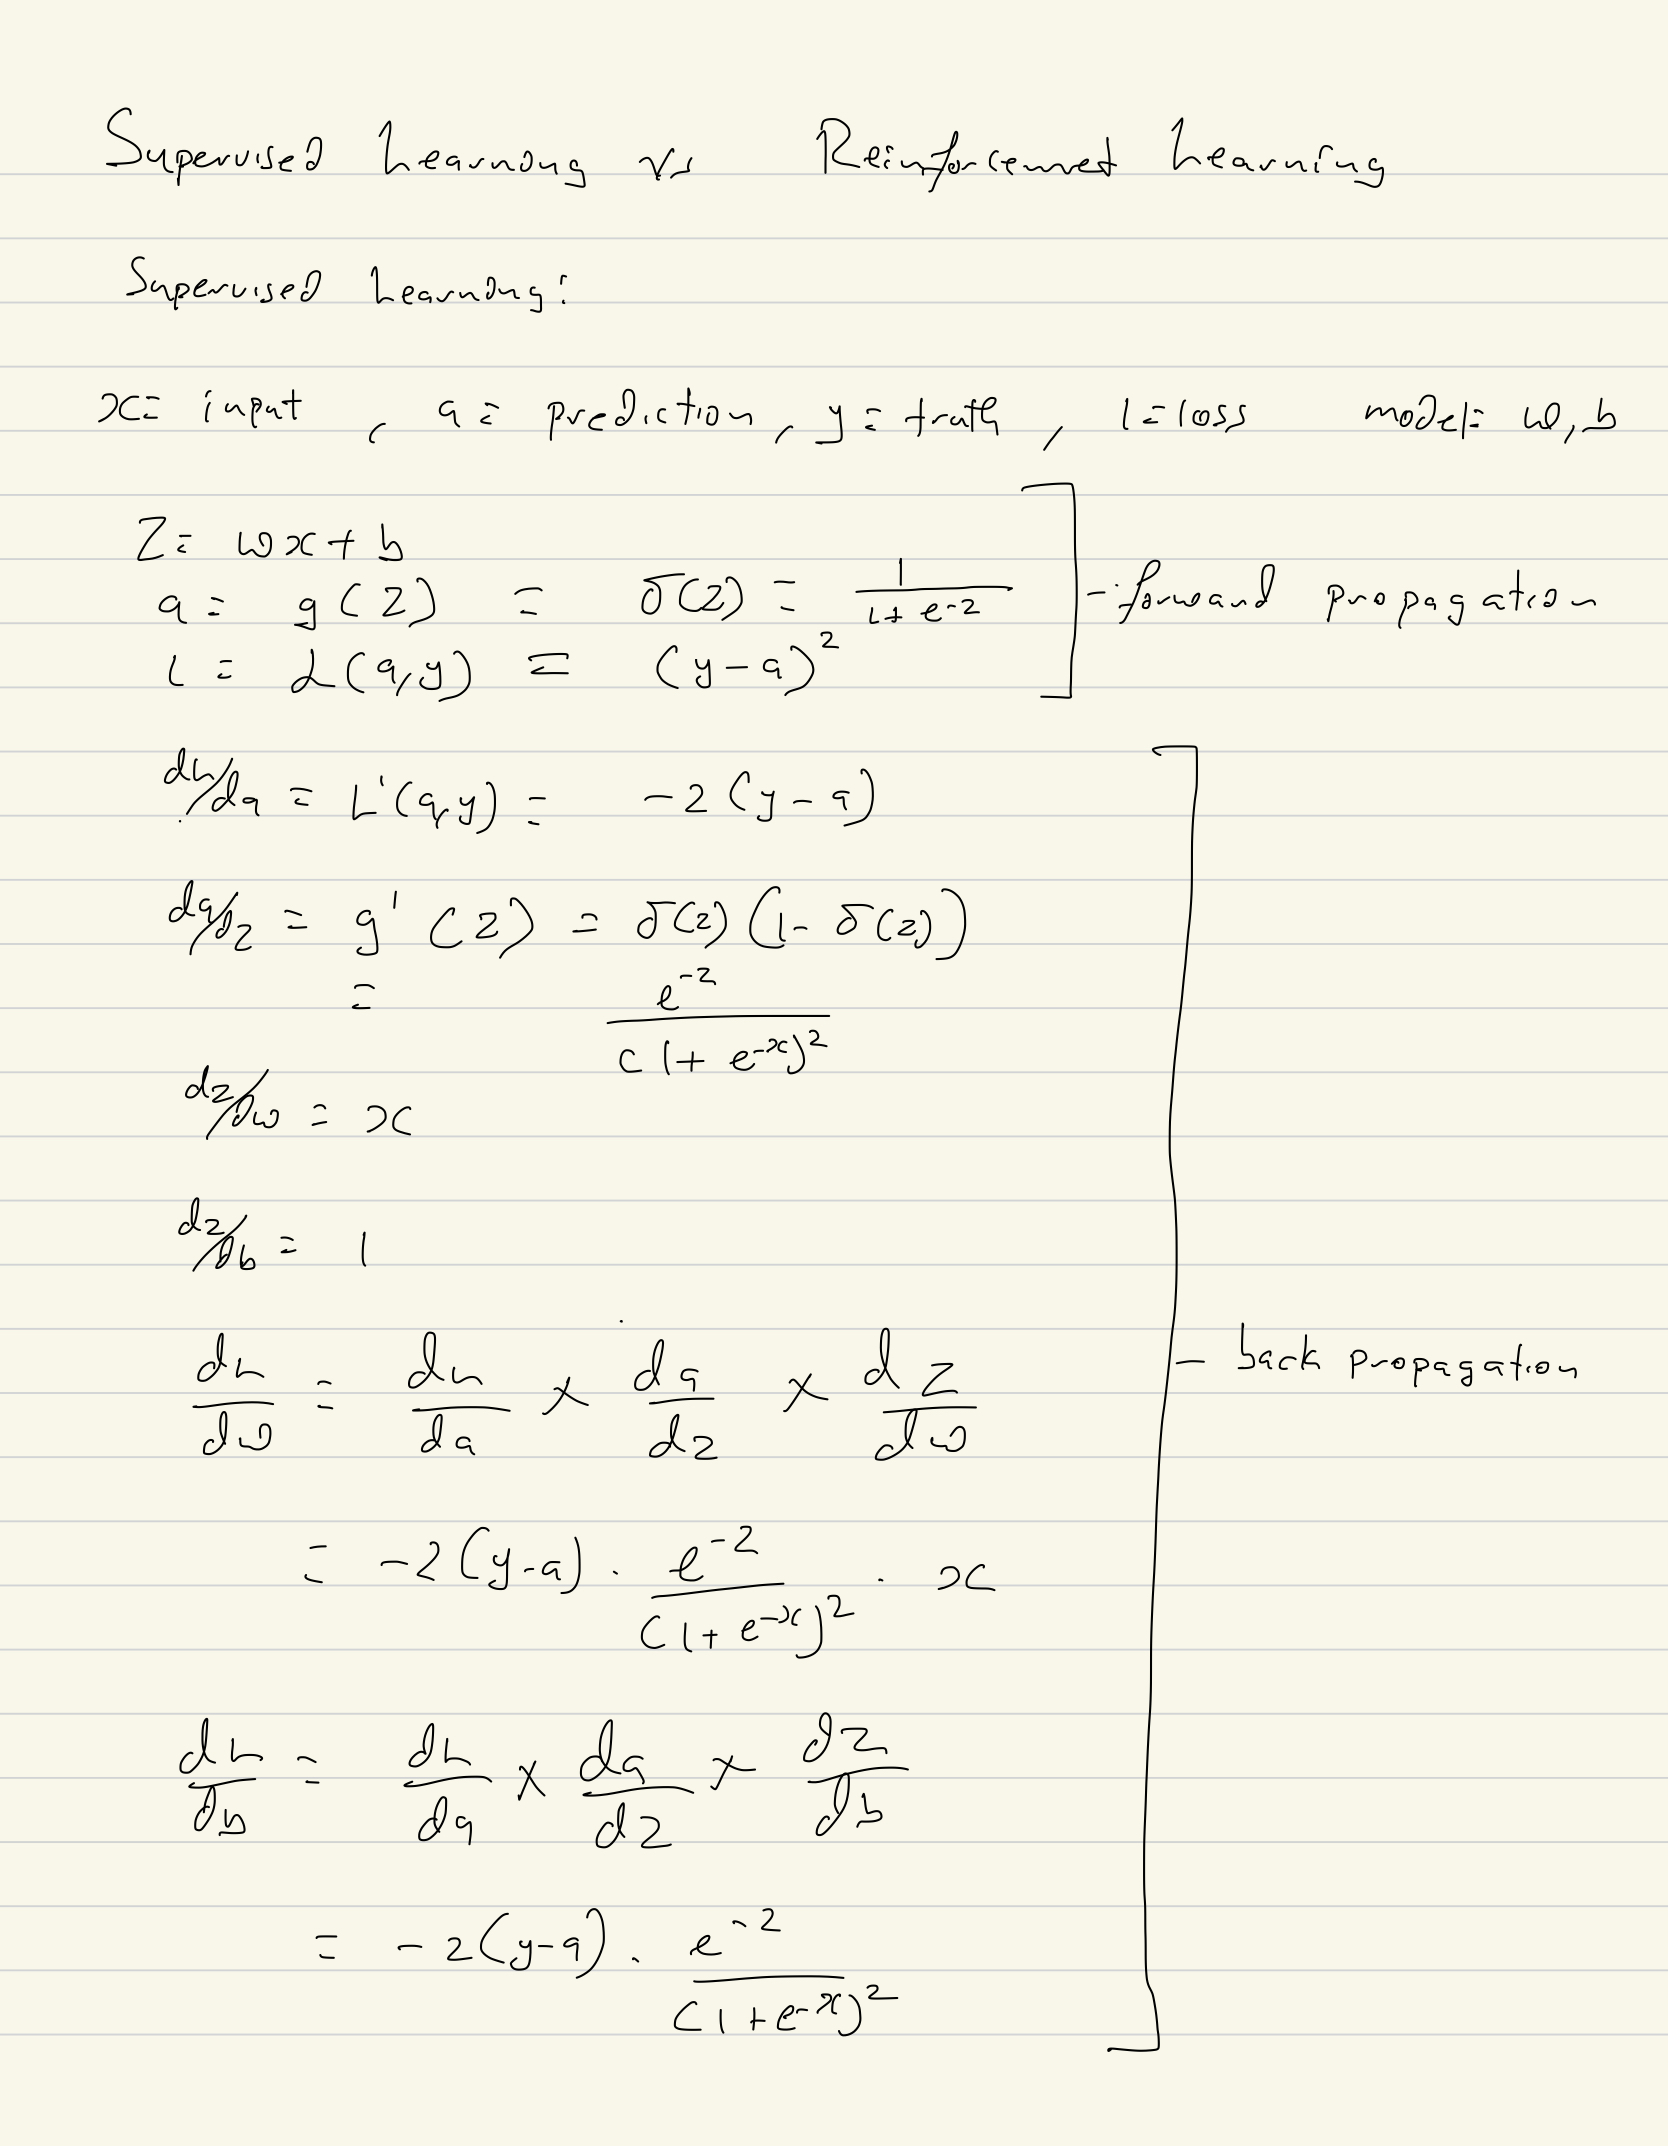 Supervised Learning vs Reinforcement Learning
Supervised Learning:
x = input , a = prediction, y = truth , l = loss model = w, b
z = wx + b
a = g(z) = σ(z) = 1/(1 + e^-z) - forward propagation
l = L(a,y) = (y-a)^2
dL/da = L'(a,y) = -2(y-a)
da/dz = g'(z) = σ(z)(1-σ(z))
= e^-z/(1+e^-x)^2
dz/dw = x
dz/db = 1
dL/dw = dL/da × da/dz × dz/dw - back propagation
= -2(y-a) · e^-z/(1+e^-x)^2 · x
dL/db = dL/da × da/dz × dz/db
= -2(y-a) · e^-z/(1+e^-x)^2